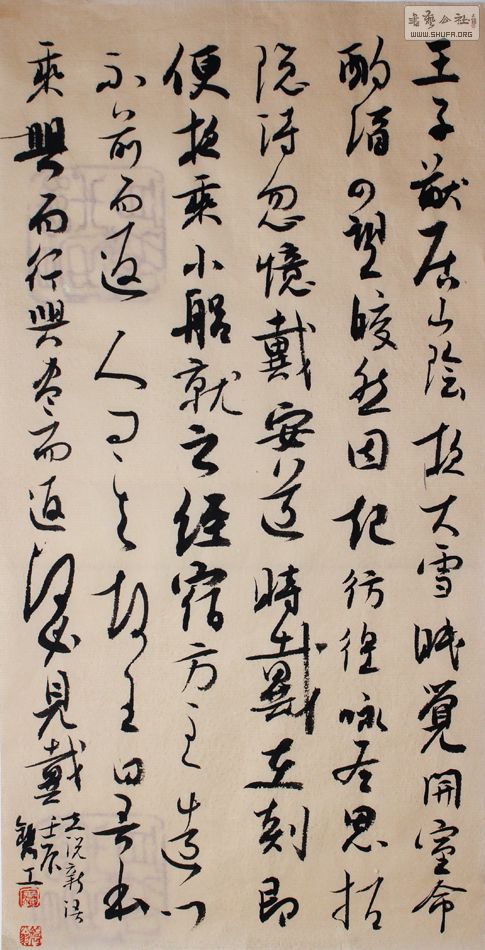 书艺公社
WWW.SHUFA.ORG
王子猷居山陰夜大雪眠覺開室命
酌酒四望皎然因起彷徨詠左思招
隐詩忽憶戴安道時戴在剡即
便夜乘小船就之經宿方至造門
不前而返人問其故王曰吾本
乘興而行興盡而返何必見戴
世说新语
壬辰